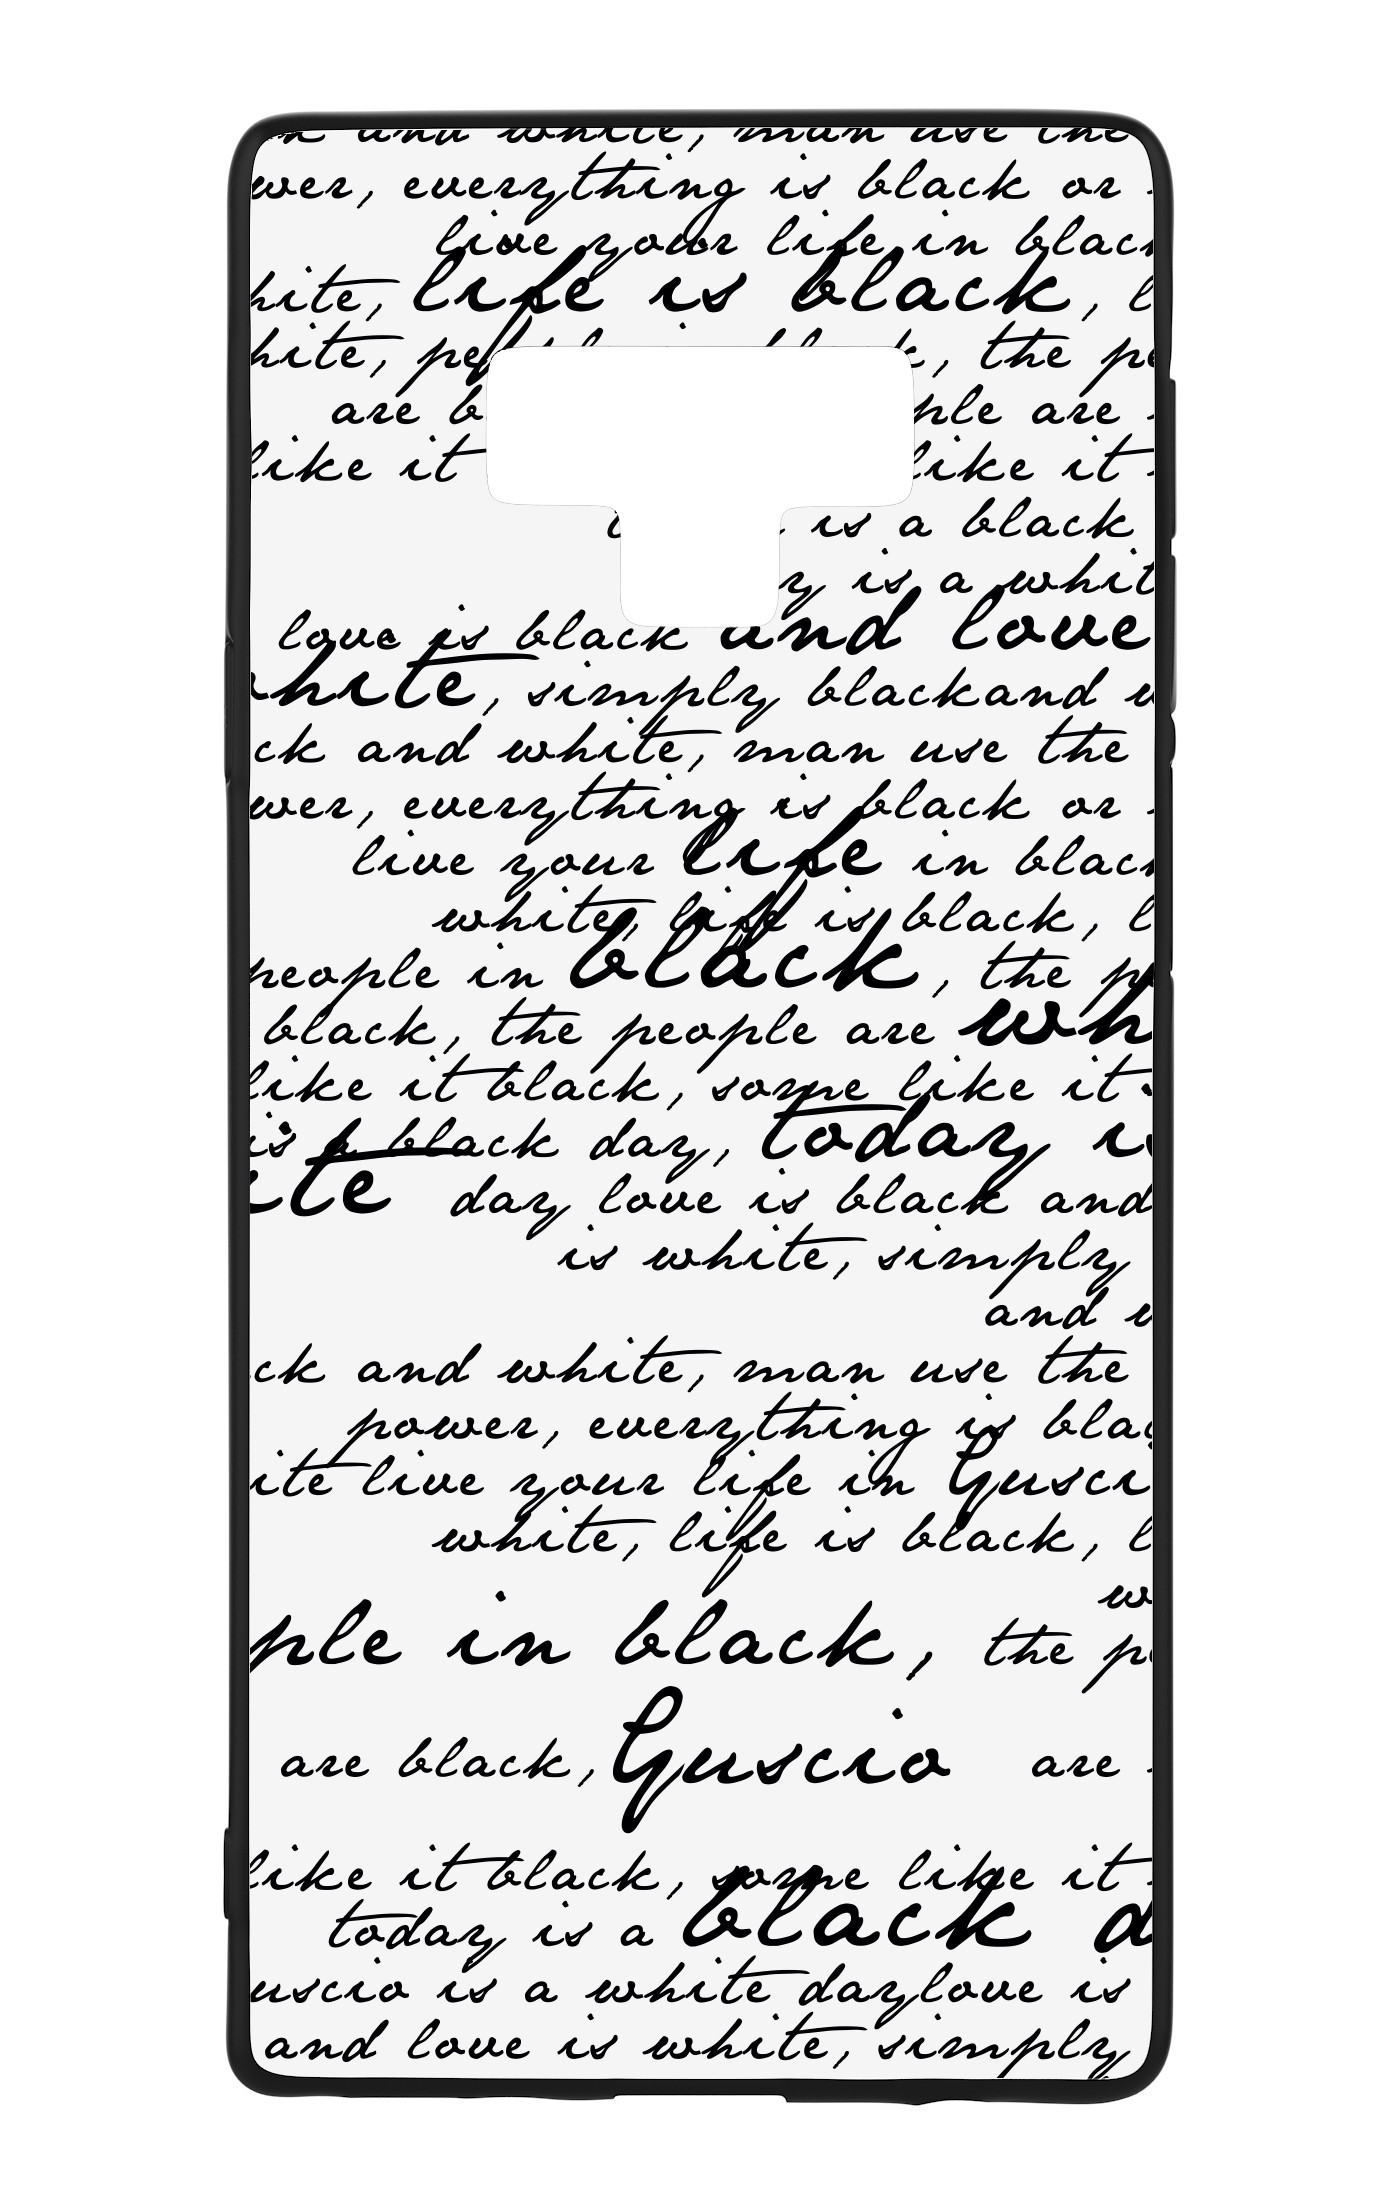 and white, man use the
wer, everything is black or
live your life in black
hite, life is black, l
hite, pe k, the pe
are b ple are
like it like it
is a black
y is a whit
love is black and love
hite, simply blackand w
ck and white, man use the
wer, everything is black or
live your life in black
white, life is black, l
people in black, the p
black, the people are wh
like it black, some like it
is a black day, today is
ite day love is black and
is white, simply
and w
ck and white, man use the
power, everything is blac
ite live your life in Gusci
white, life is black, l
w
ple in black, the pe
are black, Guscio are
like it black, some like it
today is a black d
uscio is a white daylove is
and love is white, simply